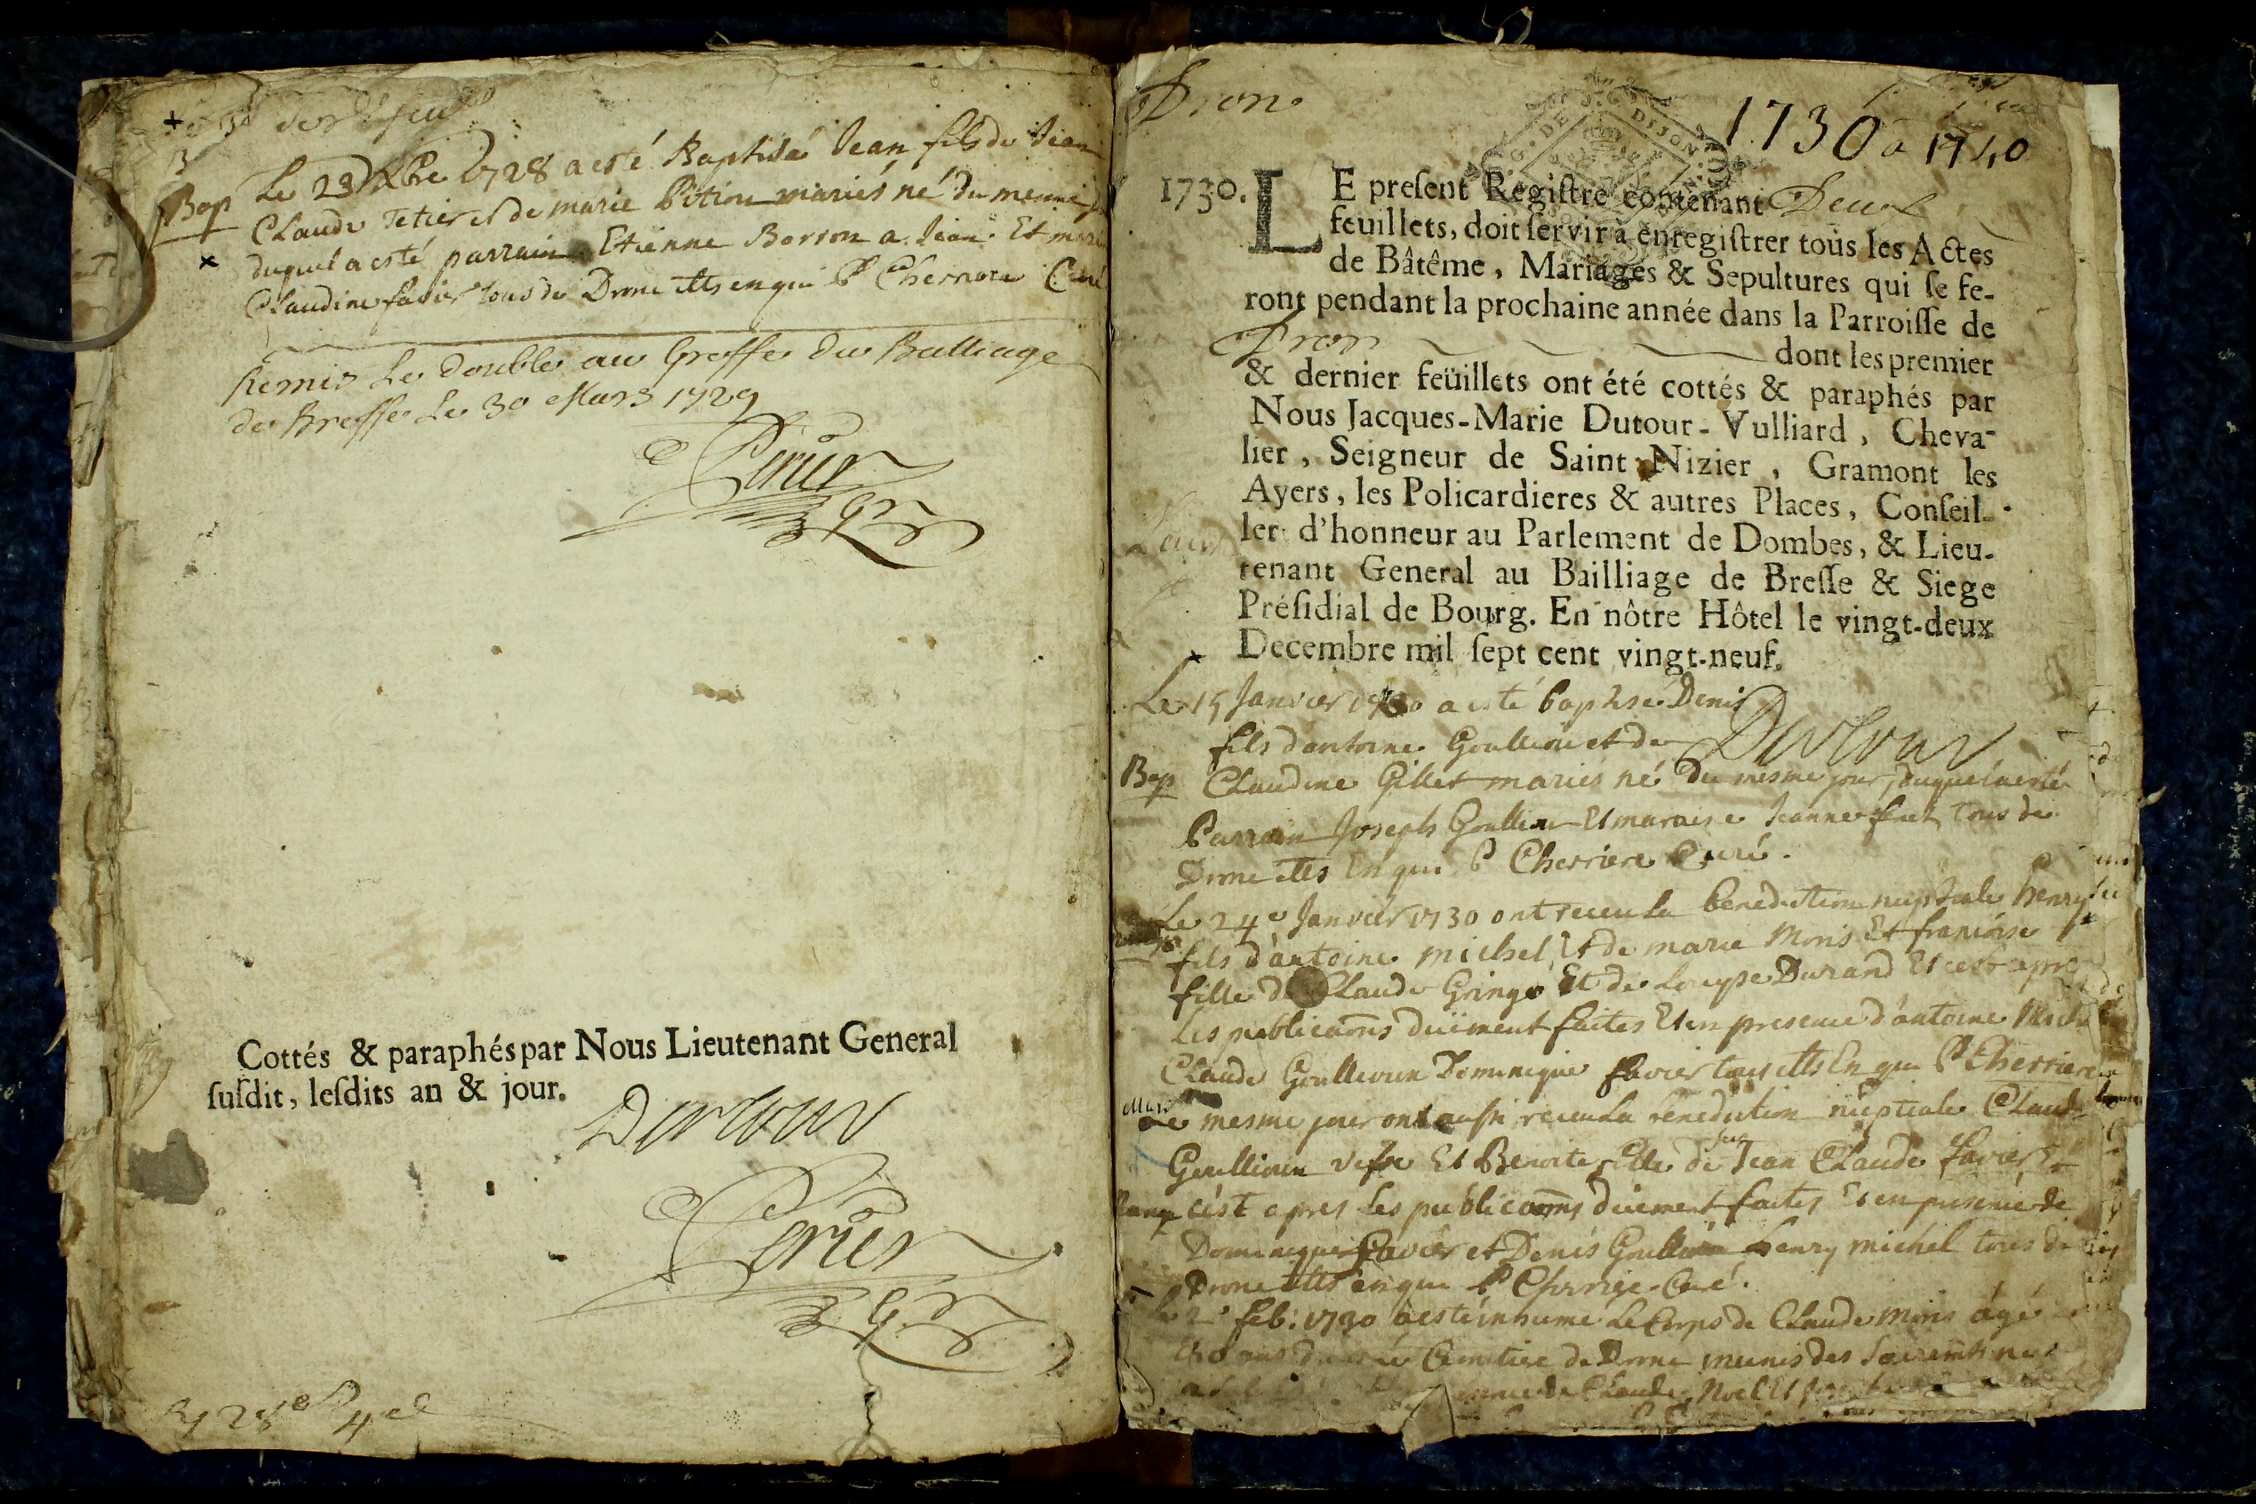 Bap Le 29 Xbre 1728 a esté Baptisé Jean fils de Jean
Claude Tetier et de marie Pition mariés né du mesme
duquel a esté parrain Etienne Borron a. Jean Et
Claudine favier tous de Drone ills en qui P Cherriere Curé
Remis Le Double au Greffe du Balliage
de Bresse Le 30 Mars 1729
Perier
Cottés & paraphés par Nous Lieutenant General
ſuſdit, leſdits an & jour.
Dutour
Perier
Dron.
1730 a 1740
1730. LE preſent Regiſtre contenant Deux
feuillets, doit ſervir à enregiſtrer tous les Actes
de Bâtême, Mariages & Sepultures qui ſe fe-
ront pendant la prochaine année dans la Parroiſſe de
Dron dont les premier
& dernier feüillets ont été cottés & paraphés par
Nous Jacques-Marie Dutour-Vulliard, Cheva-
lier, Seigneur de Saint Nizier, Gramont les
Ayers, les Policardieres & autres Places, Conſeil-
ler d'honneur au Parlement de Dombes, & Lieu-
tenant General au Bailliage de Breſſe & Siege
Préſidial de Bourg. En nôtre Hôtel le vingt-deux
Decembre mil ſept cent vingt-neuf.
Le 15 Janvier 1730 a esté baptisé Denis
Dutour
fils d'antoine Goullion et de
Bap Claudine Gillet mariés né du mesme jour, duquel a esté
Parrain Joseph Goullion Et maraise Jeanne tous de
Drone ills En qui P Cherriere Curé.
Le 24e Janvier 1730 ont receu La benediction nuptiale henry
fils d'antoine michel Et de marie Moris Et francoise
fille de Claude Gringe Et de Louyse Durand Et cest apres
Les publicaons düement faites Et en presence d'antoine
Claude Goullioun Dominique favier tous ills En qui P Cherriere
Le mesme jour ont aussi receu La benediction nuptiale Claude
Goullioun vefve Et Benoite fille de feu Jean Claude favier Et
c'est apres Les publicaons düement faites Et en presence de
Dominique favier et Denis Goullioun henry michel tous de
Drone ills en qui P Cherriere Curé.
Le 2e feb: 1730 a esté inhumé Le Corps de Claude moris âgé
ans Cemitiere de Drone munis des Sacremts
de Claude Noel Et